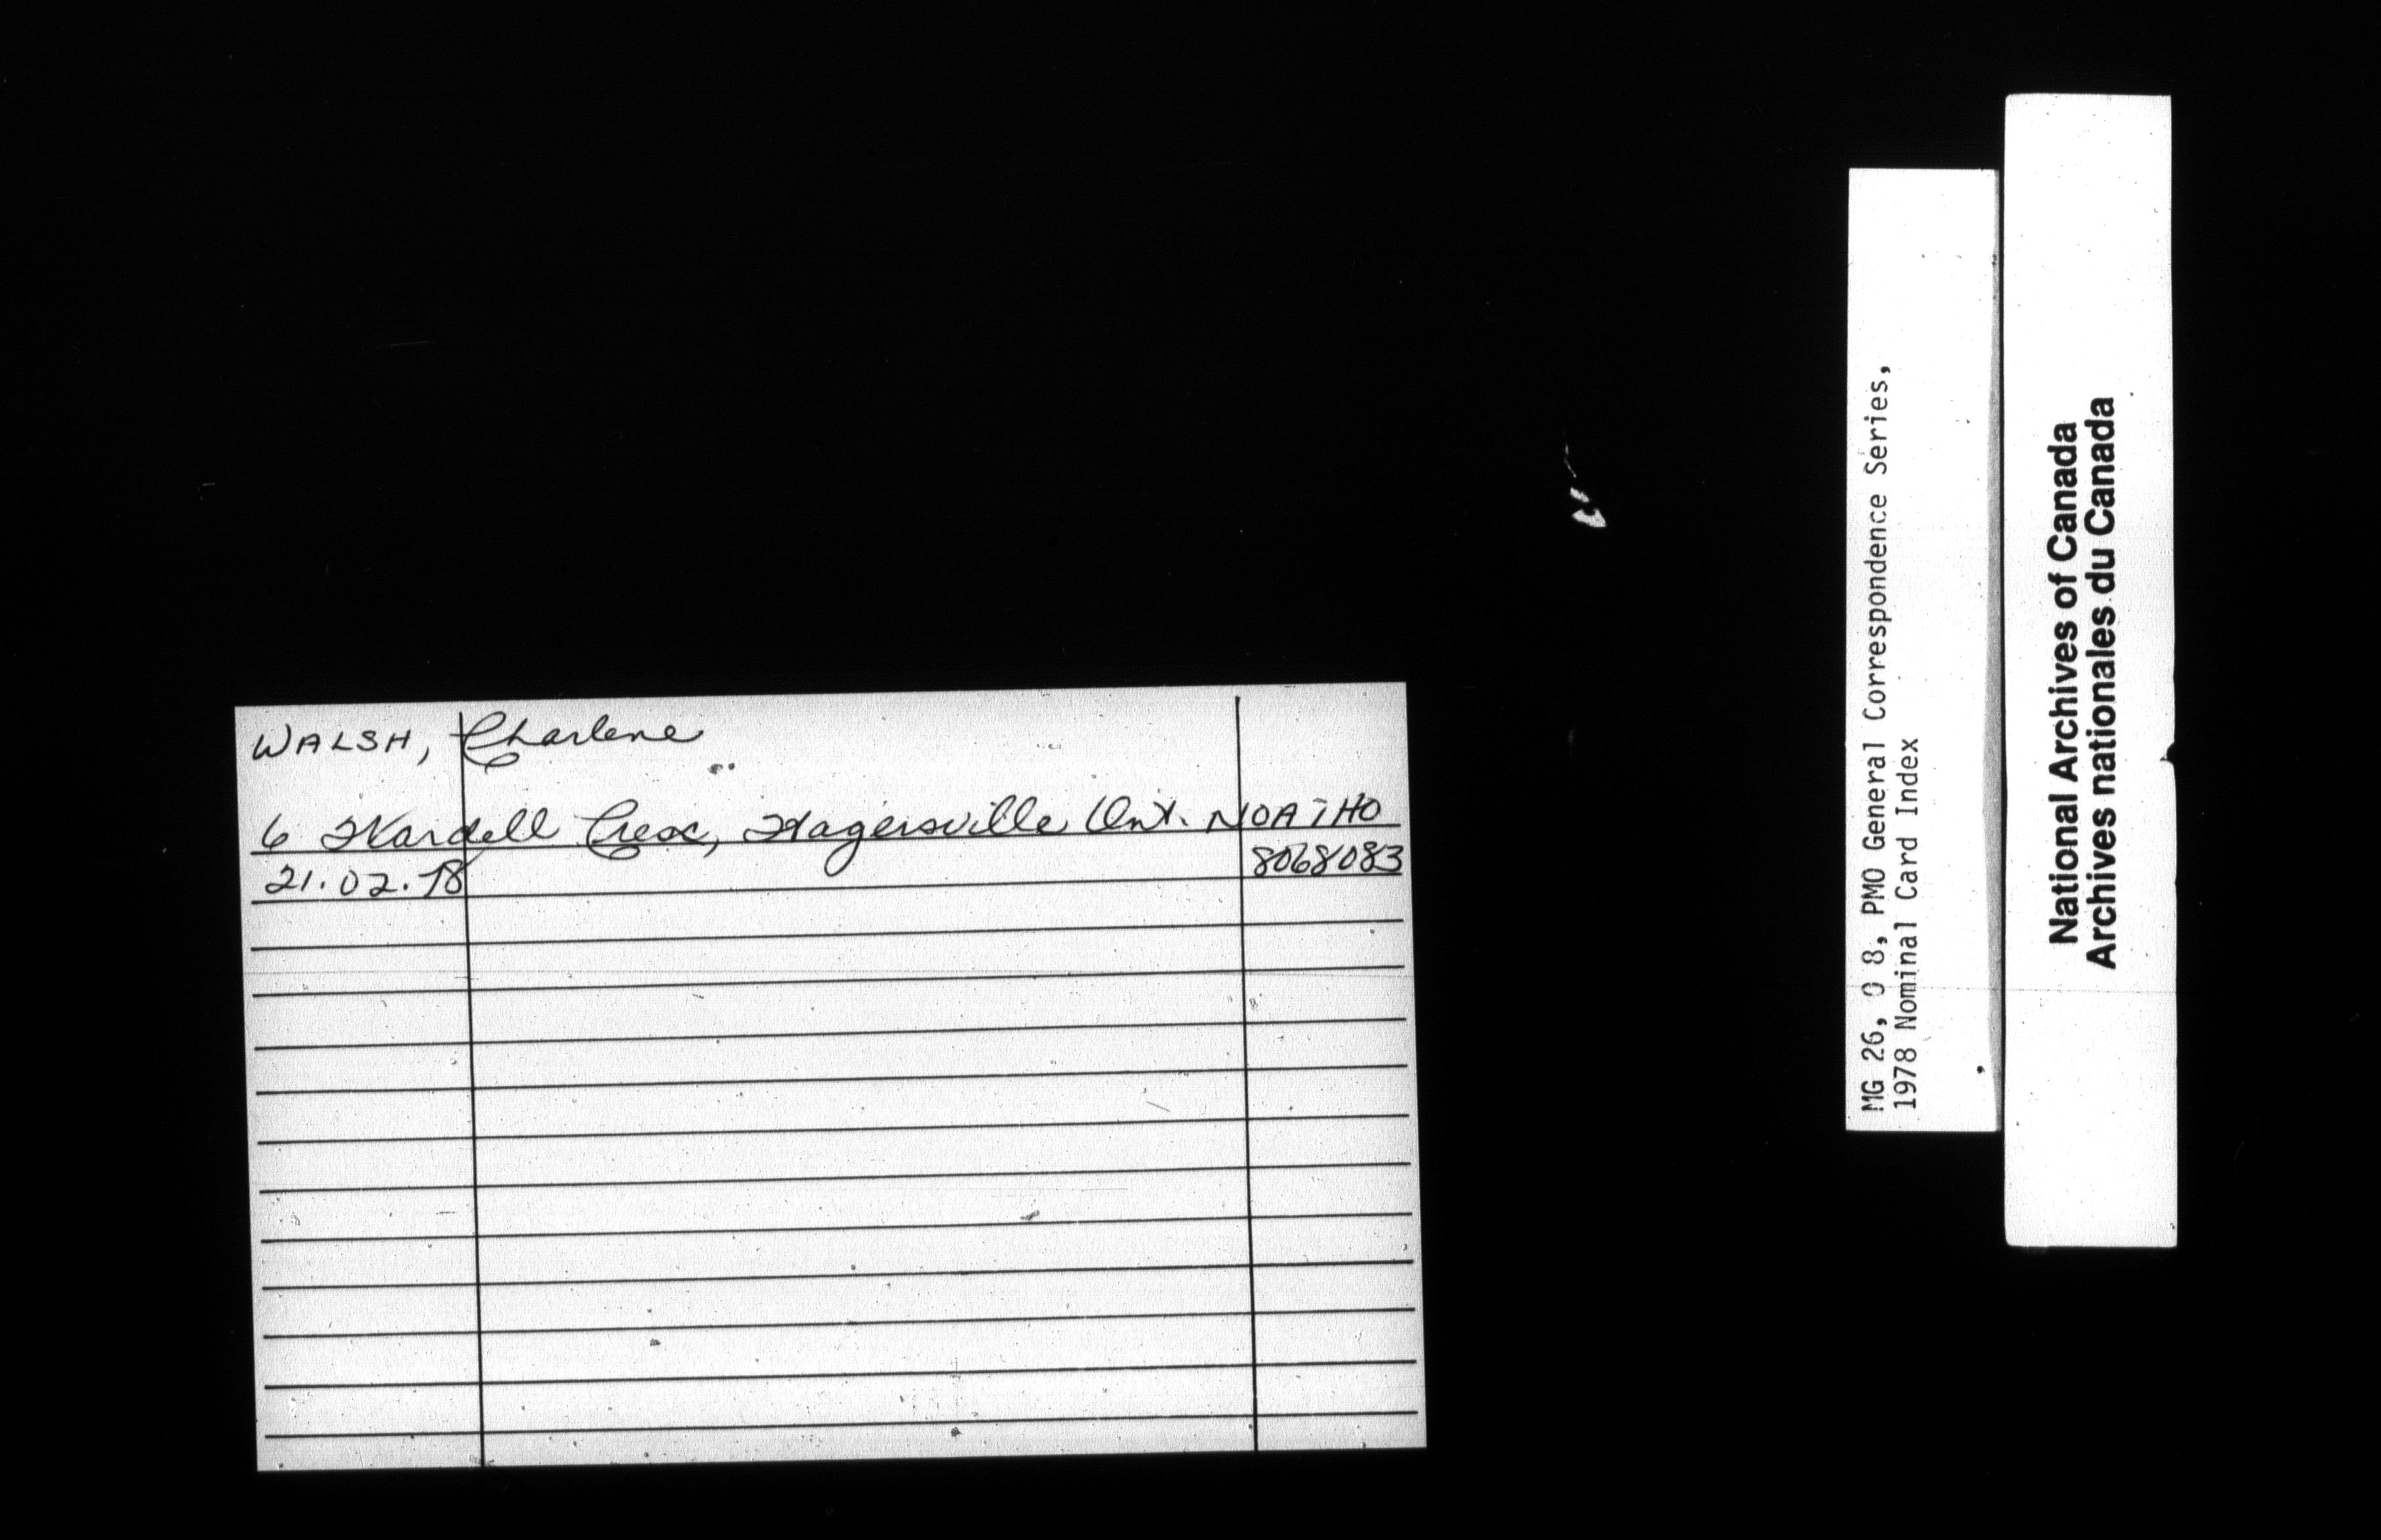 WALSH, Charlene
6 Wardell Cres, Hagersville Ont. N0A 1H0
21.02.78
8068083
MG 26, O 8, PMO General Correspondence Series,
1978 Nominal Card Index
National Archives of Canada
Archives nationales du Canada